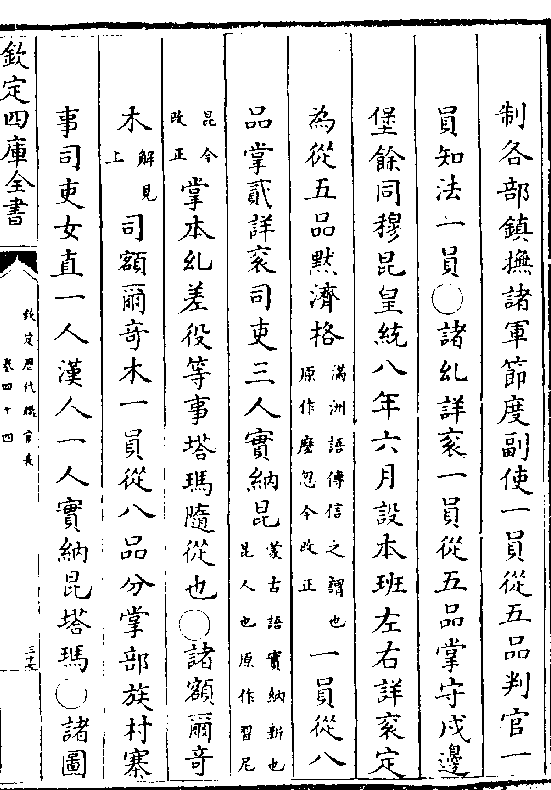 制各部鎮撫諸軍節度副使一員從五品判官一
員知法一員〇諸乣詳衮一員從五品掌守戍邊
堡餘同穆昆皇統八年六月設本班左右詳衮定
為從五品黙濟格滿洲語傳信之謂也原作麽忽今改正一員從八
品掌貳詳衮司吏三人實納昆蒙古語實納新也昆人也原作習尼
昆今改正掌本乣差役等事塔瑪隨從也〇諸額爾奇
木解見上司額爾奇木一員從八品分掌部族村寨
事司吏女直一人漢人一人實納昆塔瑪〇諸圖
欽定四庫全書
欽定歷代職官表
卷四十四